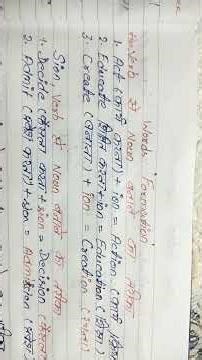 Words Formation
Verb से Noun बनाने का तरीका
1. Act (कार्य करना) + ion = Action (कार्य
2. Educate शिक्षित करना + ion = Education (शिक्षा)
3. Create (बनाना) + ion = Creation (
Sion, Verb से Noun बनाने का तरीका
1. Decide ( करना + sion = Decision (
2. Admit ( करना + sion = Admission (